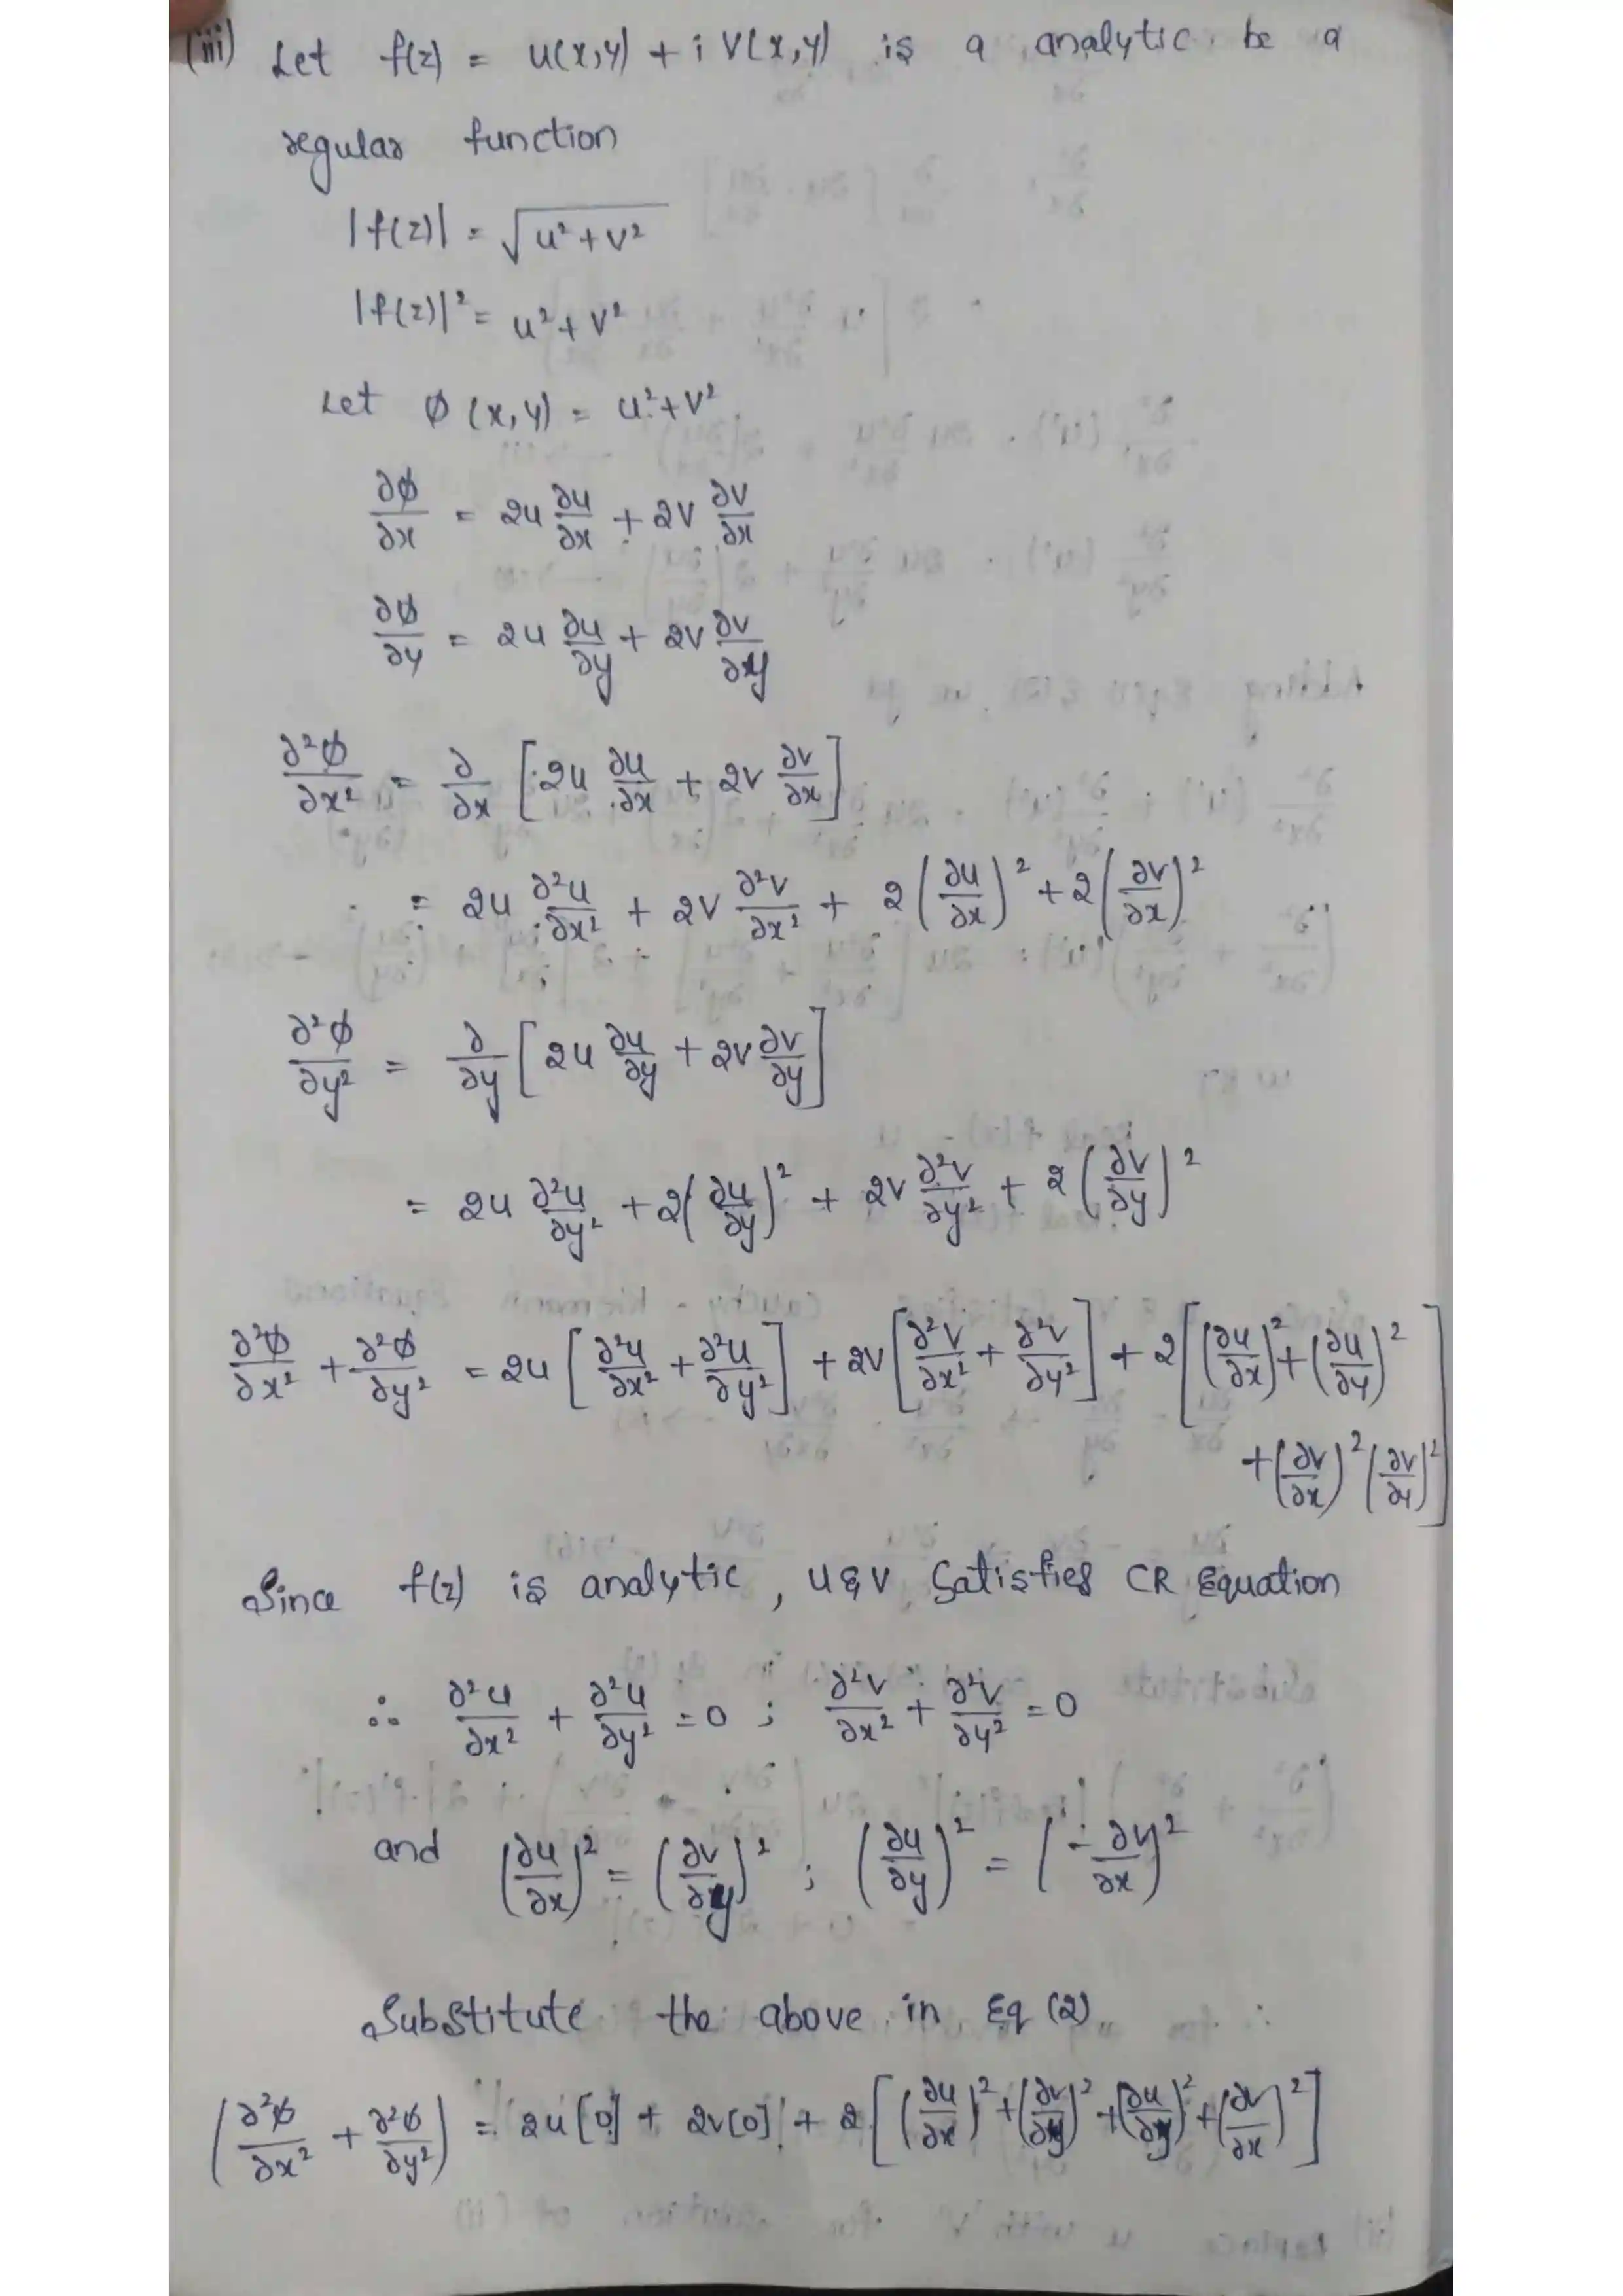 (iii) Let f(z) = u(x,y) + i V(x,y) is a analytic be a
regular function
|f(z)| = √(u²+v²)
|f(z)|² = u²+v²
Let ϕ (x,y) = u²+v²
∂ϕ/∂x = 2u ∂u/∂x + 2v ∂v/∂x
∂ϕ/∂y = 2u ∂u/∂y + 2v ∂v/∂y
∂²ϕ/∂x² = ∂/∂x [2u ∂u/∂x + 2v ∂v/∂x]
= 2u ∂²u/∂x² + 2v ∂²v/∂x² + 2(∂u/∂x)² + 2(∂v/∂x)²
∂²ϕ/∂y² = ∂/∂y [2u ∂u/∂y + 2v ∂v/∂y]
= 2u ∂²u/∂y² + 2(∂u/∂y)² + 2v ∂²v/∂y² + 2(∂v/∂y)²
∂²ϕ/∂x² + ∂²ϕ/∂y² = 2u [∂²u/∂x² + ∂²u/∂y²] + 2v [∂²v/∂x² + ∂²v/∂y²] + 2[(∂u/∂x)² + (∂u/∂y)²
+ (∂v/∂x)² (∂v/∂y)²]
Since f(z) is analytic, u & v satisfies CR Equation
∴ ∂²u/∂x² + ∂²u/∂y² = 0 ; ∂²v/∂x² + ∂²v/∂y² = 0
and (∂u/∂x)² = (∂v/∂y)² ; (∂u/∂y)² = (-∂v/∂x)²
Substitute the above in Eq (2)
(∂²ϕ/∂x² + ∂²ϕ/∂y²) = 2u[0] + 2v[0] + 2[(∂u/∂x)² + (∂v/∂y)² + (∂u/∂y)² + (∂v/∂x)²]